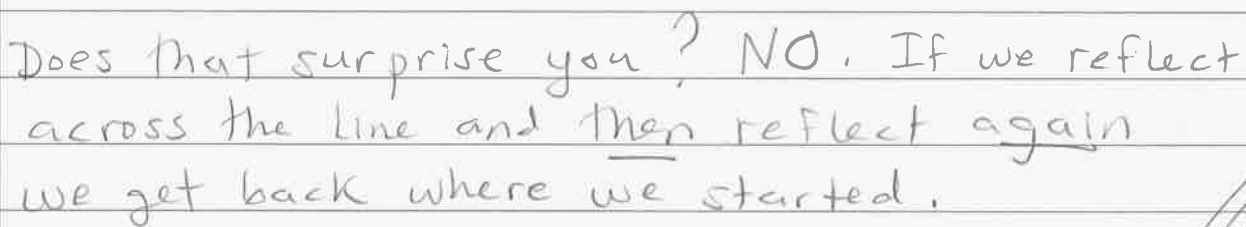 Does that surprise you? NO. If we reflect
across the line and then reflect again
we get back where we started.